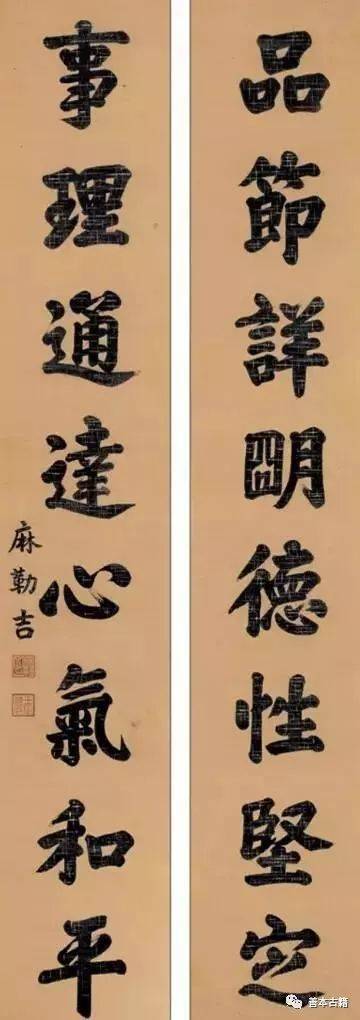 品節詳明德性堅定
事理通達心氣和平
麻勒吉
善本古籍